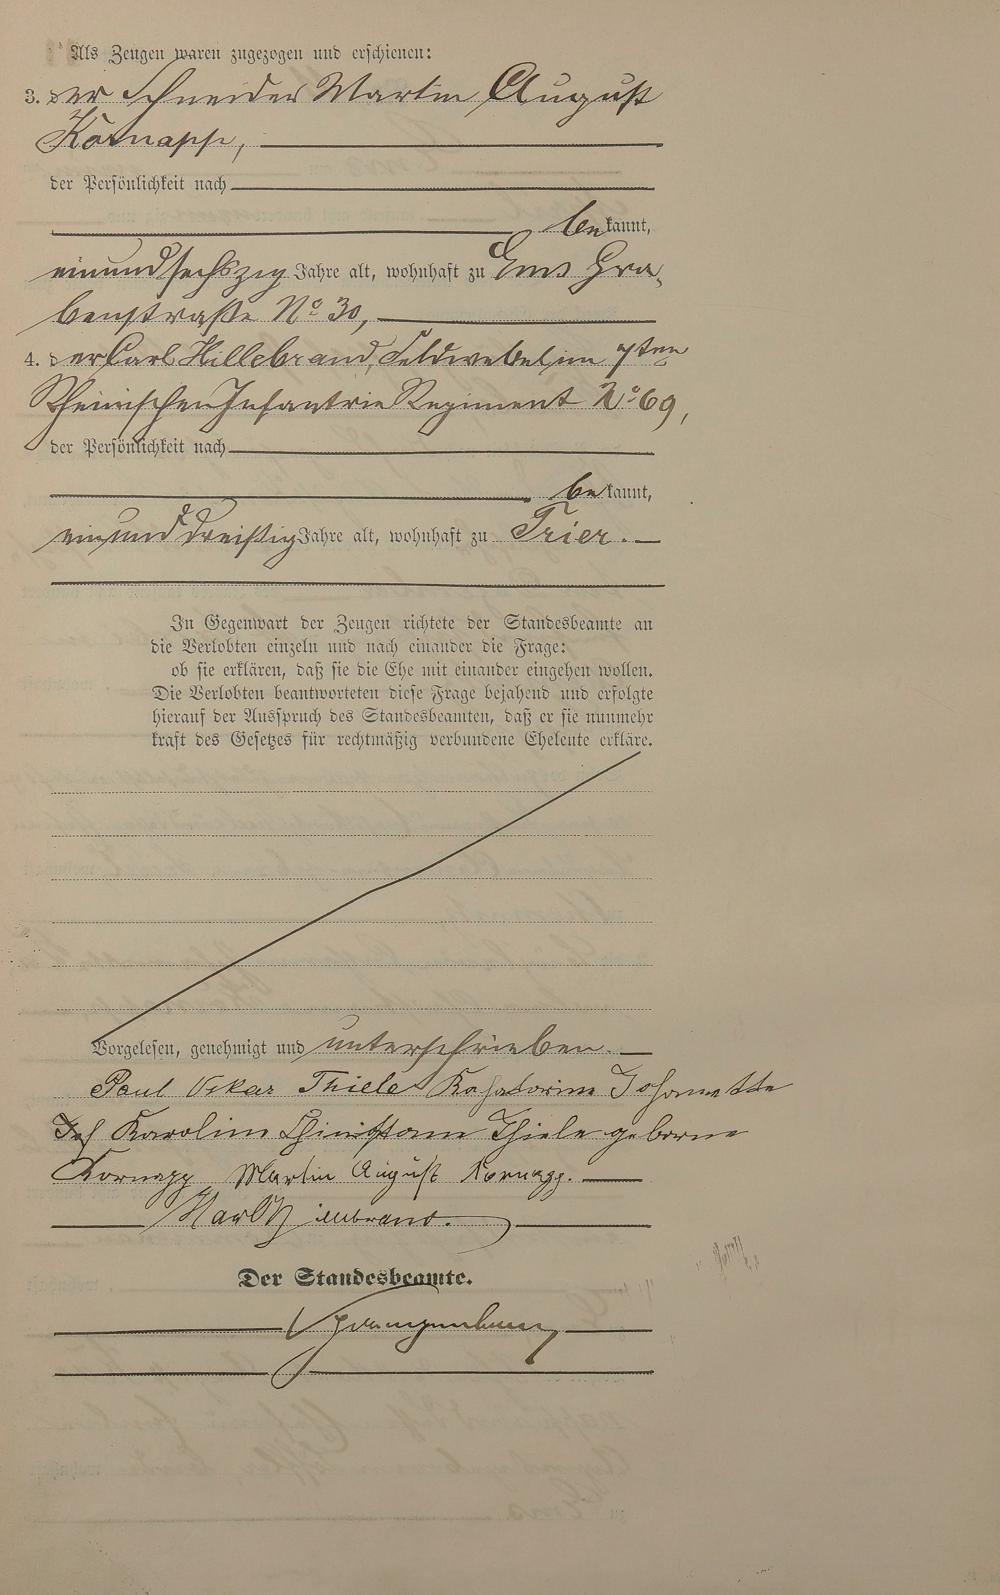 Als Zeugen waren zugezogen und erschienen:
3. der Schneider Martin August
Kornapp,
der Persönlichkeit nach
bekannt,
einundsechszig Jahre alt, wohnhaft zu Ems Gra-
benstraße No 30,
4. der Carl Hillebrand, Feldwebel im 7ten
Rheinischen Infantrie Regiment No 69,
der Persönlichkeit nach
bekannt,
einunddreißig Jahre alt, wohnhaft zu Trier.
In Gegenwart der Zeugen richtete der Standesbeamte an
die Verlobten einzeln und nach einander die Frage:
ob sie erklären, daß sie die Ehe mit einander eingehen wollen.
Die Verlobten beantworteten diese Frage bejahend und erfolgte
hierauf der Ausspruch des Standesbeamten, daß er sie nunmehr
kraft des Gesetzes für rechtmäßig verbundene Eheleute erkläre.
Vorgelesen, genehmigt und unterschrieben.
Paul Oskar Thiele Katharine Johanette
Karoline Thiele geborne
Kornapp Martin August Kornapp.
Karl Hillebrand.
Der Standesbeamte.